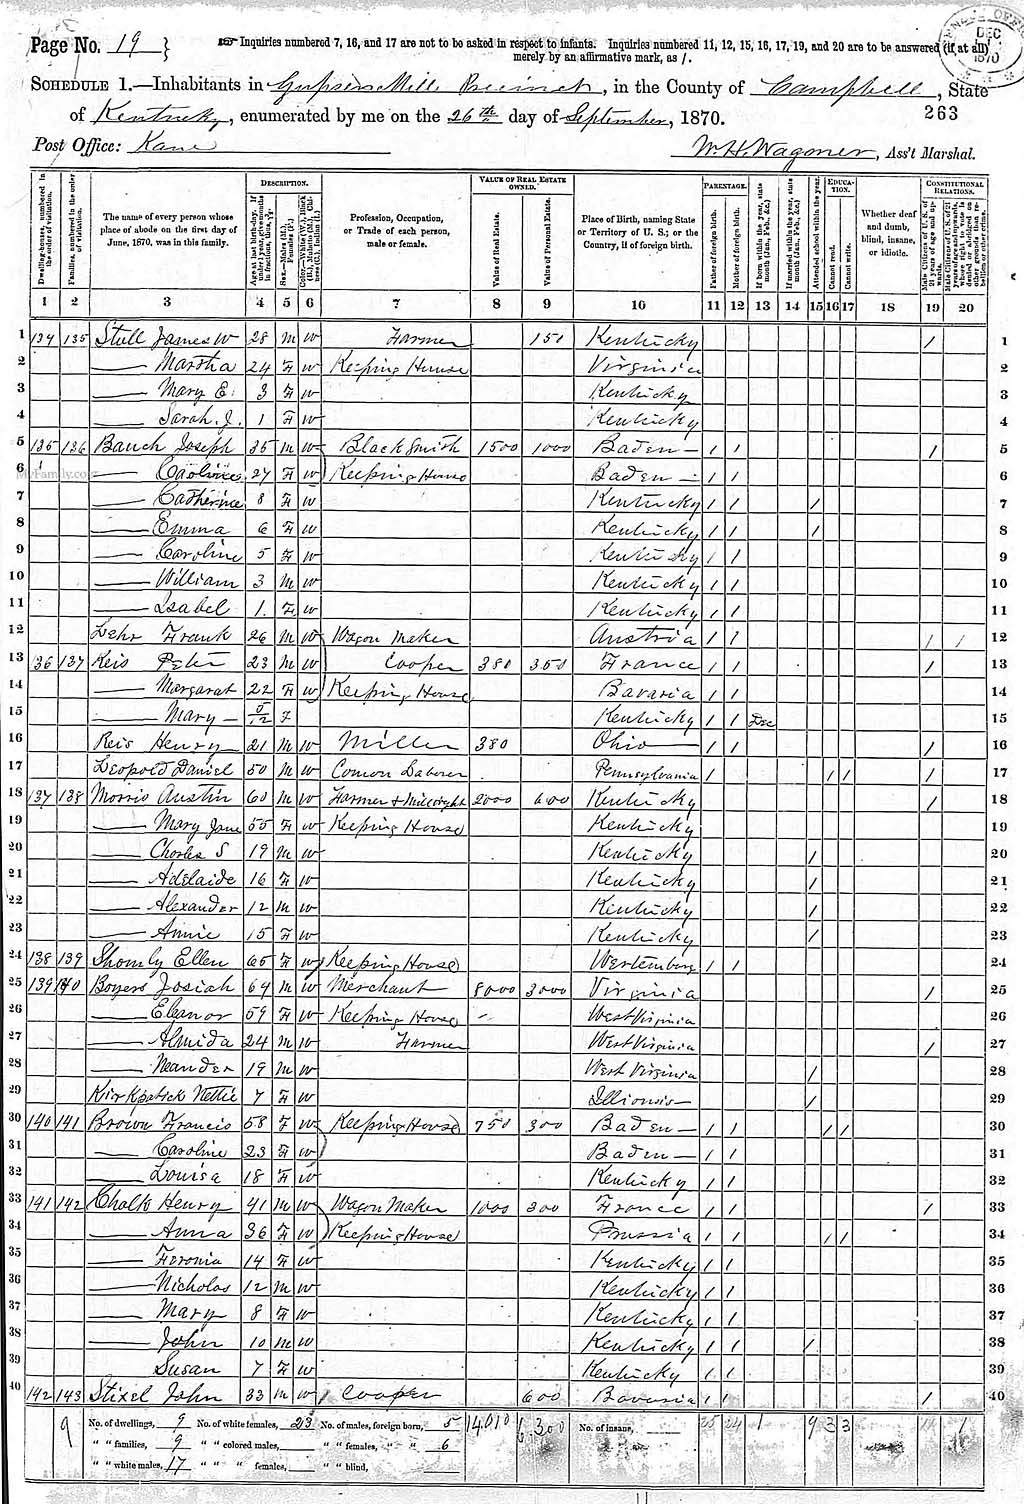 Page No. 19 }
Inquiries numbered 7, 16, and 17 are not to be asked in respect to infants. Inquiries numbered 11, 12, 15, 16, 17, 19, and 20 are to be answered (if at all)
merely by an affirmative mark, as /.
DEC
1870
SCHEDULE 1.—Inhabitants in Mill Precinct, in the County of Campbell, State
of Kentucky, enumerated by me on the 26th day of September, 1870.
263
Post Office: Kane
W. H. Wagoner, Ass't Marshal.
DESCRIPTION. VALUE OF REAL ESTATE OWNED. PARENTAGE. EDUCATION. CONSTITUTIONAL RELATIONS.
Dwelling-houses, numbered in the order of visitation.
Families, numbered in the order of visitation.
The name of every person whose place of abode on the first day of June, 1870, was in this family.
Age at last birth-day. If under 1 year, give months in fractions, thus, 3/12.
Sex.—Males (M.), Females (F.)
Color.—White (W.), Black (B.), Mulatto (M.), Chinese (C.), Indian (I.)
Profession, Occupation, or Trade of each person, male or female.
Value of Real Estate.
Value of Personal Estate.
Place of Birth, naming State or Territory of U. S.; or the Country, if of foreign birth.
Father of foreign birth.
Mother of foreign birth.
If born within the year, state month (Jan., Feb., &c.)
If married within the year, state month (Jan., Feb., &c.)
Attended school within the year.
Cannot read.
Cannot write.
Whether deaf and dumb, blind, insane, or idiotic.
Male Citizens of U. S. of 21 years of age and upwards.
Male Citizens of U. S. of 21 years of age and upwards, where right to vote is denied or abridged on other grounds than rebellion or other crime.
1 2 3 4 5 6 7 8 9 10 11 12 13 14 15 16 17 18 19 20
1 134 135 Stull James W 28 M W Farmer 150 Kentucky / 1
2 —— Martha 24 F W Keeping House Virginia 2
3 —— Mary E. 3 F W Kentucky 3
4 —— Sarah. J. 1 F W Kentucky 4
5 135 136 Bauch Joseph 35 M W Black Smith 1500 1000 Baden — / / / 5
6 —— 27 F W Keeping House Baden — / / 6
7 —— Catherine 8 F W Kentucky / / / 7
8 —— Emma 6 F W Kentucky / / / 8
9 —— Caroline 5 F W Kentucky / / 9
10 —— William 3 M W Kentucky / / 10
11 —— Isabel 1. F W Kentucky / / 11
12 Lehr Frank 26 M W Wagon Maker Austria / / / / 12
13 136 137 Reis Peter 23 M W Cooper 380 350 France / / / 13
14 —— Margarat 22 F W Keeping House Bavaria / / 14
15 —— Mary — F Kentucky / / Dec 15
16 Reis Henry 21 M W Miller 380 Ohio / / / 16
17 Leopold Daniel 50 M W Comon Laborer Pennsylvania / / / / 17
18 137 138 Morris Austin 60 M W Farmer & Millright 2000 600 Kentucky / 18
19 —— Mary Jane 55 F W Keeping House Kentucky 19
20 —— Charles S 19 M W Kentucky / 20
21 —— Adelaide 16 F W Kentucky / 21
22 —— Alexander 12 M W Kentucky / 22
23 —— Annie 15 F W Kentucky / 23
24 138 139 Shomly Ellen 65 F W Keeping House Wertemberg / / 24
25 139 140 Boyers Josiah 64 M W Merchant 8000 3000 Virginia / 25
26 —— Eleanor 59 F W Keeping House West Virginia 26
27 —— Almida 24 M W Farmer West Virginia / 27
28 —— Neander 19 M W West Virginia / 28
29 Kirkpatick Nettie 7 F W Illionis / 29
30 140 141 Brown Francis 58 F W Keeping House 750 300 Baden — / / / / 30
31 —— Caroline 23 F W Baden — / / 31
32 —— Louisa 18 F W Kentucky / / 32
33 141 142 Chalk Henry 41 M W Wagon Maker 1000 300 France / / / 33
34 —— Anna 36 F W Keeping House Prussia / / / / 34
35 —— Feronia 14 F W Kentucky / / 35
36 —— Nicholas 12 M W Kentucky / / 36
37 —— Mary 8 F W Kentucky / / 37
38 —— John 10 M W Kentucky / / / 38
39 Susan 7 F W Kentucky / / 39
40 142 143 Stixel John 33 M W Cooper 600 Bavaria / / / 40
9 No. of dwellings, 9 No. of white females, 23 No. of males, foreign born, 5 14010 No. of insane, 25 24 1 9 3 3 1
" " families, 9 " " colored males, " " females, " " 6
" " white males, 17 " " " females, " " blind,